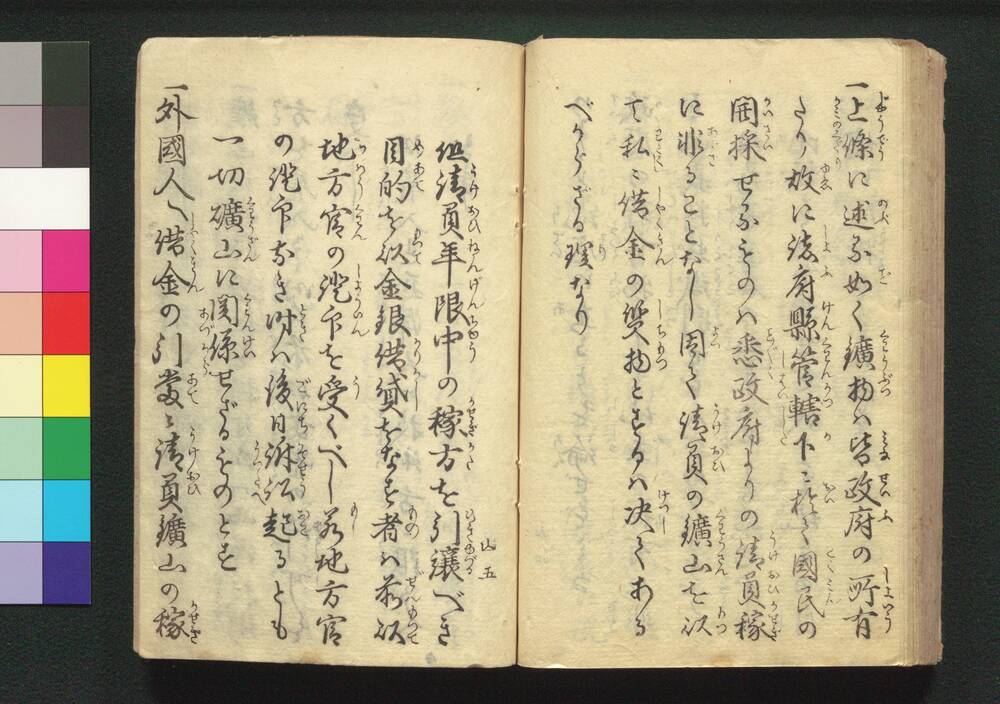 一上條に述る如く鑛物ハ皆政府の所有
たり故に諸府縣管轄下ニ於て國民の
開採せるものハ悉政府よりの請負稼
に非ることなし因て請負の鑛山を以
て私ニ借金の質物とするハ决てある
べからざる理なり
但請負年限中の稼方を引讓べき
目的を以金銀借貸をなす者ハ前以
地方官の證印を受くべし若地方官
の證印なき時ハ後日訴訟起るとも
一切礦山に関係せざるものとす
一外國人へ借金の引當ニ請負鑛山の稼
山五